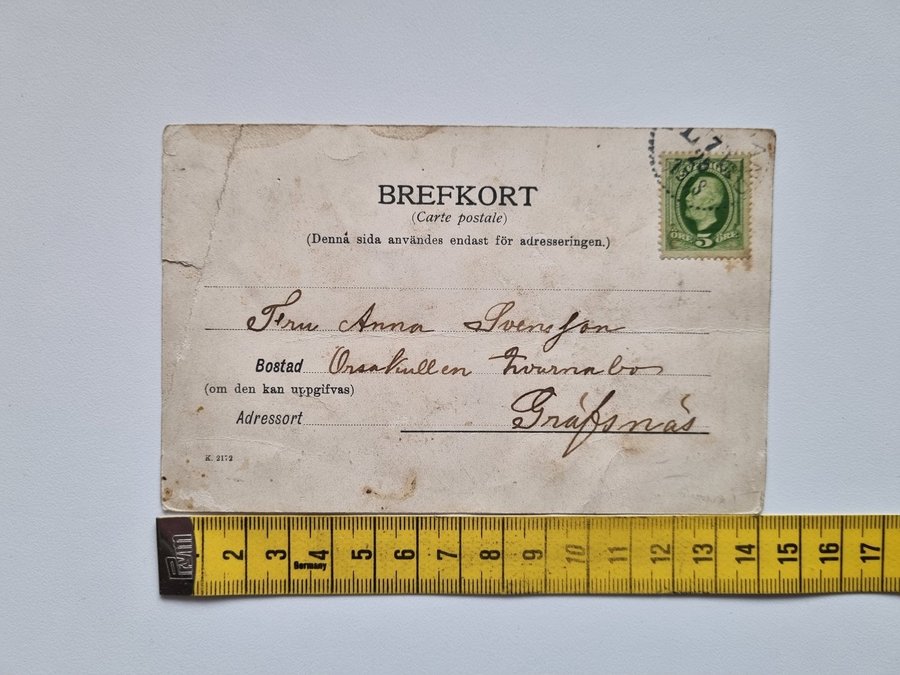 BREFKORT
(Carte postale)
(Denna sida användes endast för adresseringen.)
5
ÖRE 5 ÖRE
Fru Anna Svensson
Bostad Orsakullen Kvarnabo
(om den kan uppgifvas)
Adressort Gräfsnäs
K. 2172
2 3 4 5 6 7 8 9 10 11 12 13 14 15 16 17
Germany